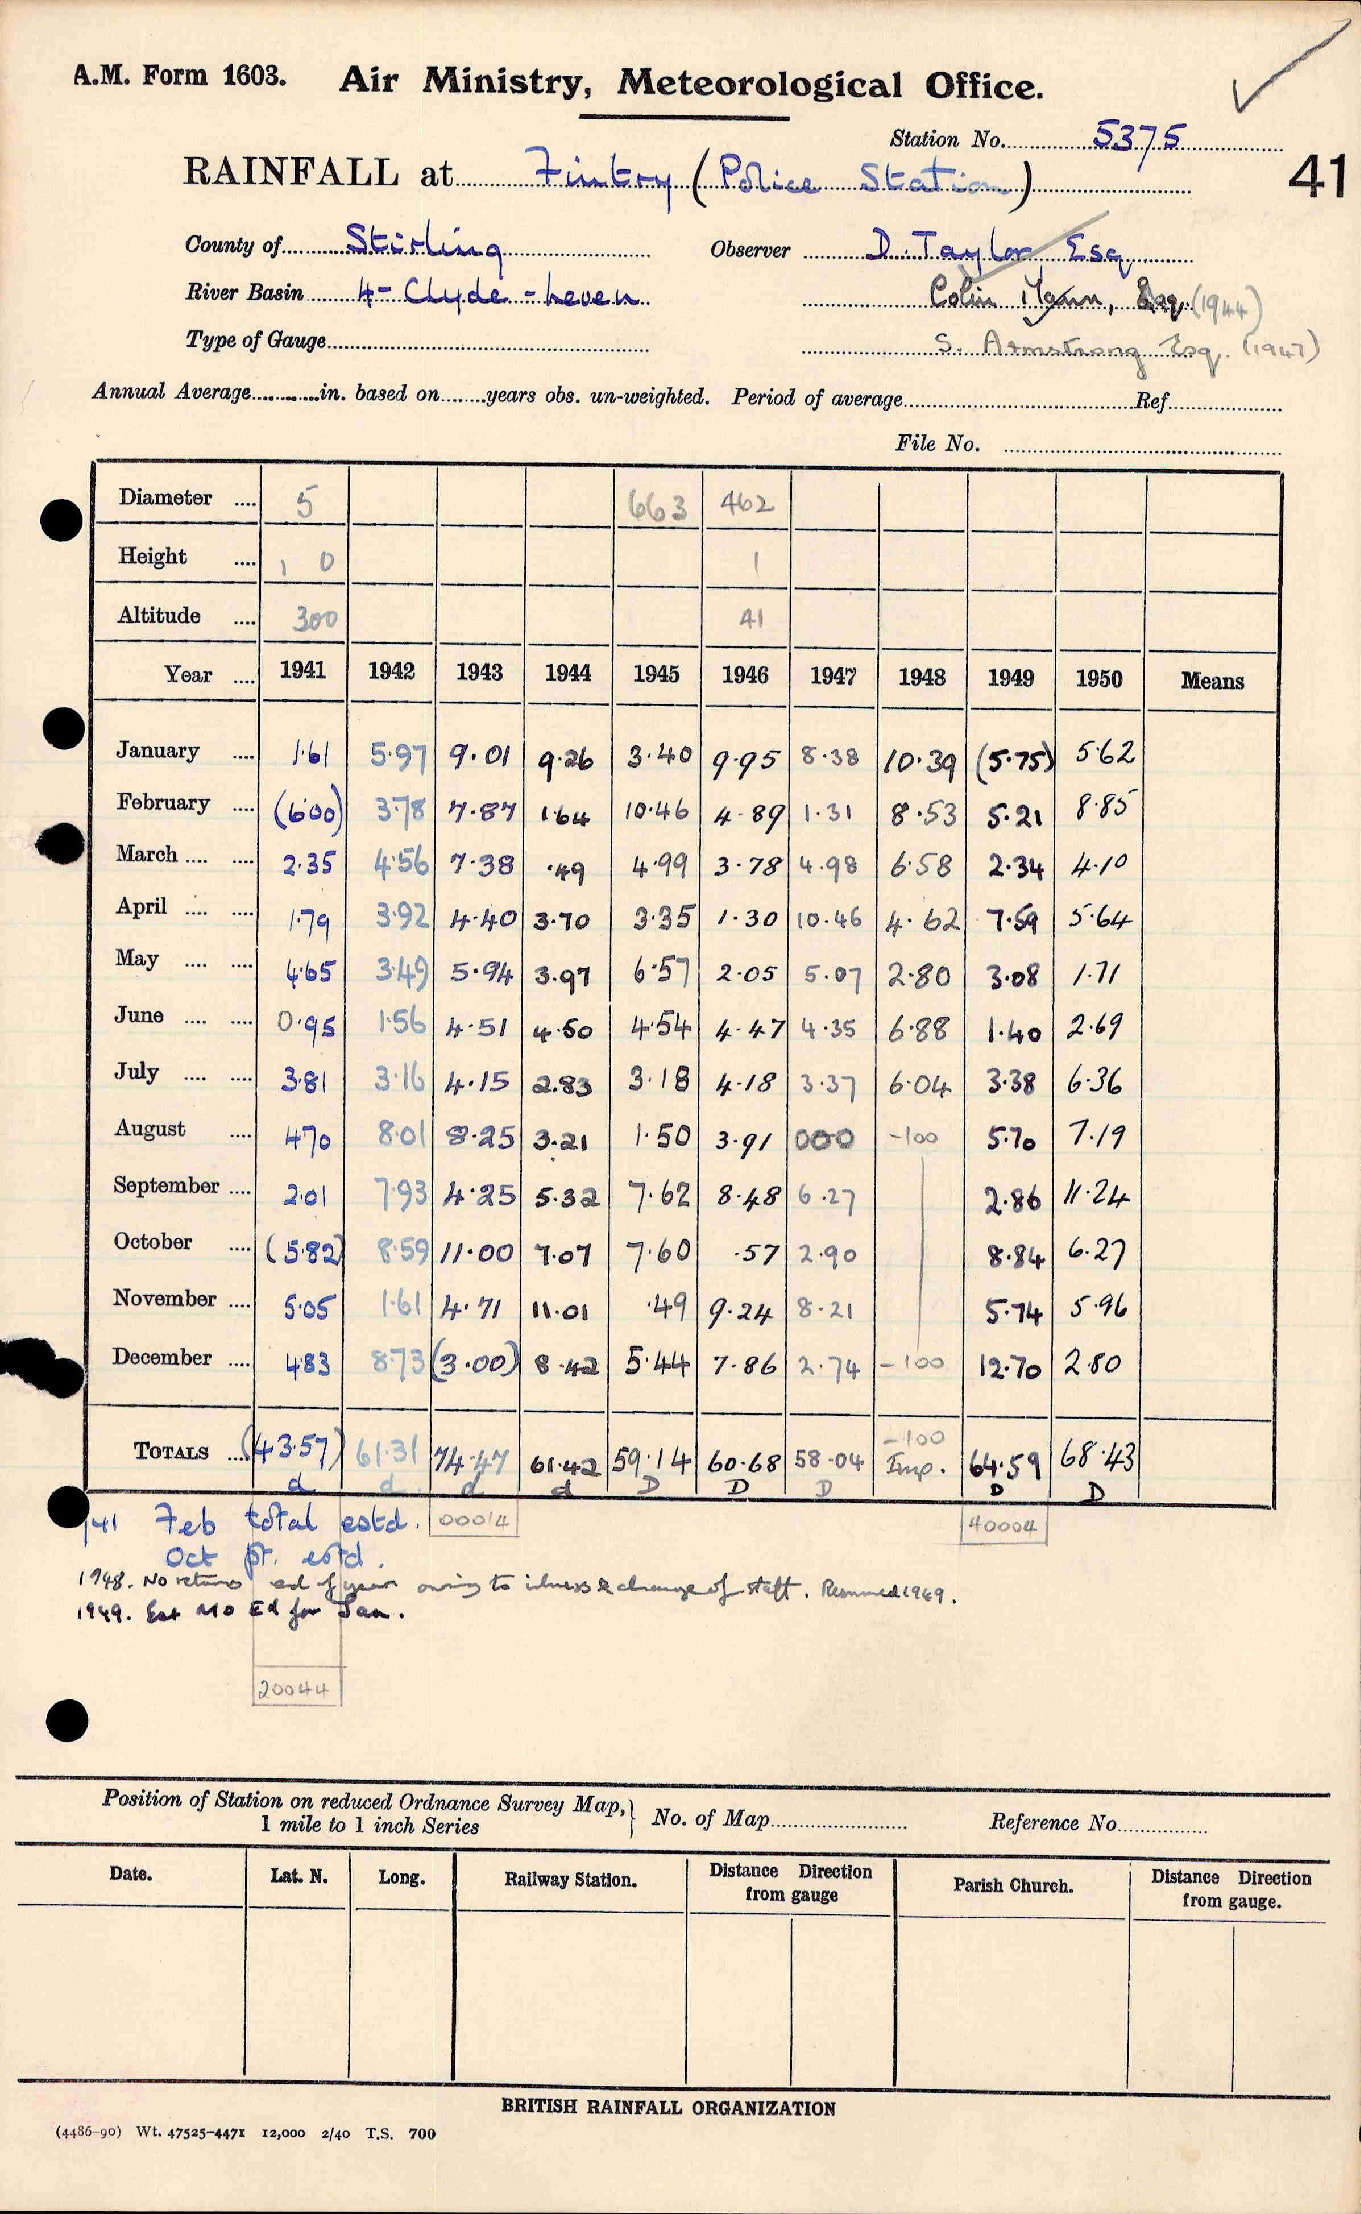 A.M. Form 1603. Air Ministry, Meteorological Office.
Station No. 5375
41
RAINFALL at Fintry (Police Station)
County of Stirling Observer D. Taylor Esq
River Basin 4 - Clyde - Leven Colin Mann, Esq. (1944)
Type of Gauge S. Armstrong Esq. (1947)
Annual Average in. based on years obs. un-weighted. Period of average Ref.
File No.
Diameter 5 663 462
Height 1 0 1
Altitude 300 41
Year 1941 1942 1943 1944 1945 1946 1947 1948 1949 1950 Means
January 1.61 5.97 9.01 9.26 3.40 9.95 8.38 10.39 (5.75) 5.62
February (6.00) 3.78 7.87 1.64 10.46 4.89 1.31 8.53 5.21 8.85
March 2.35 4.56 7.38 .49 4.99 3.78 4.98 6.58 2.34 4.10
April 1.79 3.92 4.40 3.70 3.35 1.30 10.46 4.62 7.59 5.64
May 4.65 3.49 5.94 3.97 6.57 2.05 5.07 2.80 3.08 1.71
June 0.95 1.56 4.51 4.50 4.54 4.47 4.35 6.88 1.40 2.69
July 3.81 3.16 4.15 2.83 3.18 4.18 3.37 6.04 3.38 6.36
August 4.70 8.01 8.25 3.21 1.50 3.91 000 -100 5.70 7.19
September 2.01 7.93 4.25 5.32 7.62 8.48 6.27 2.86 11.24
October (5.82) 8.59 11.00 7.07 7.60 .57 2.90 8.84 6.27
November 5.05 1.61 4.71 11.01 .49 9.24 8.21 5.74 5.96
December 4.83 8.73 (3.00) 8.42 5.44 7.86 2.74 -100 12.70 2.80
-100
TOTALS (43.57) 61.31 74.47 61.42 59.14 60.68 58.04 Imp. 64.59 68.43
d d d d D D D D D
/41 Feb total estd. 00014 40004
Oct pt. estd.
1948. No returns end of year owing to illness & change of staff. Resumed 1949.
1949. Est MO Ed for Jan.
20044
Position of Station on reduced Ordnance Survey Map, 1 mile to 1 inch Series No. of Map Reference No.
Date. Lat. N. Long. Railway Station. Distance Direction from gauge Parish Church. Distance Direction from gauge.
BRITISH RAINFALL ORGANIZATION
(4486-90) Wt. 47525-4471 12,000 2/40 T.S. 700